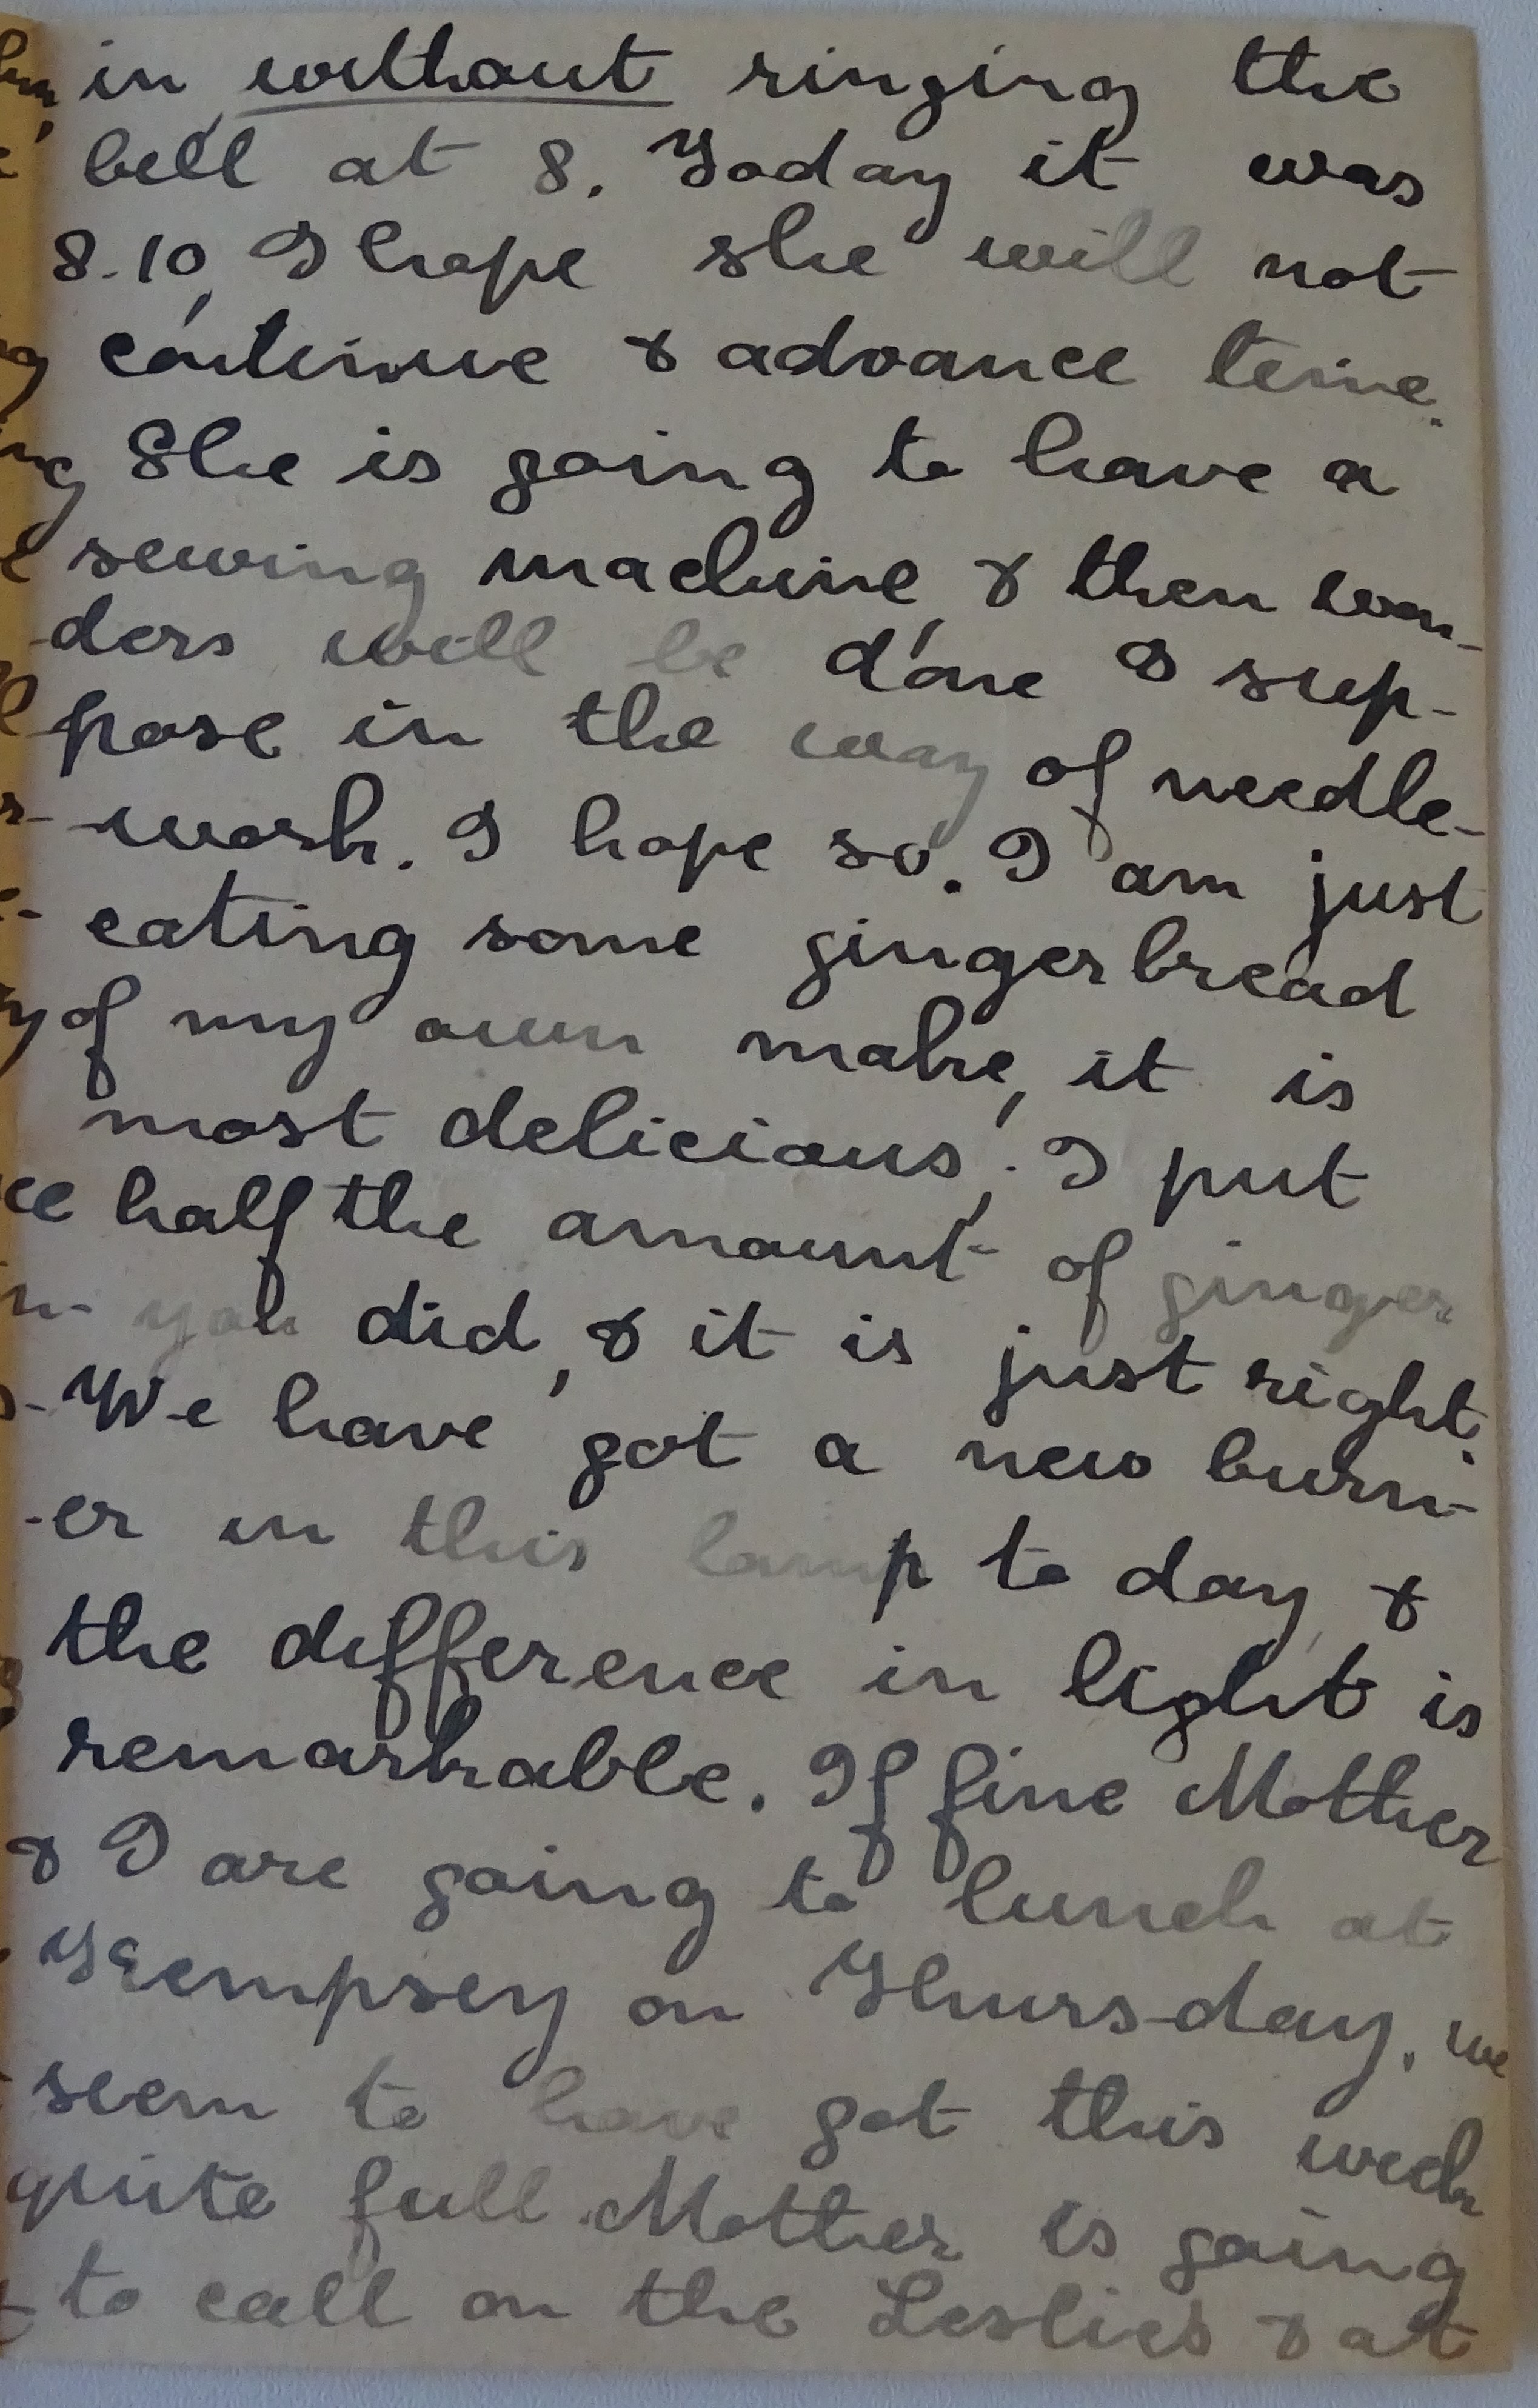 in without ringing the
bell at 8. Today it was
8.10, I hope she will not
continue & advance time.
She is going to have a
sewing machine, & then won-
ders will be done I sup-
pose in the way of needle-
-work. I hope so. I am just
eating some gingerbread
of my own make, it is
most delicious; I put
half the amount of ginger
you did, & it is just right.
We have got a new burn-
-er in this lamp to day, &
the difference in light is
remarkable. If fine Mother
& I are going to lunch at
Kempsey on Thursday. we
seem to have got this week
quite full. Mother is going
to call on the Leslies & at